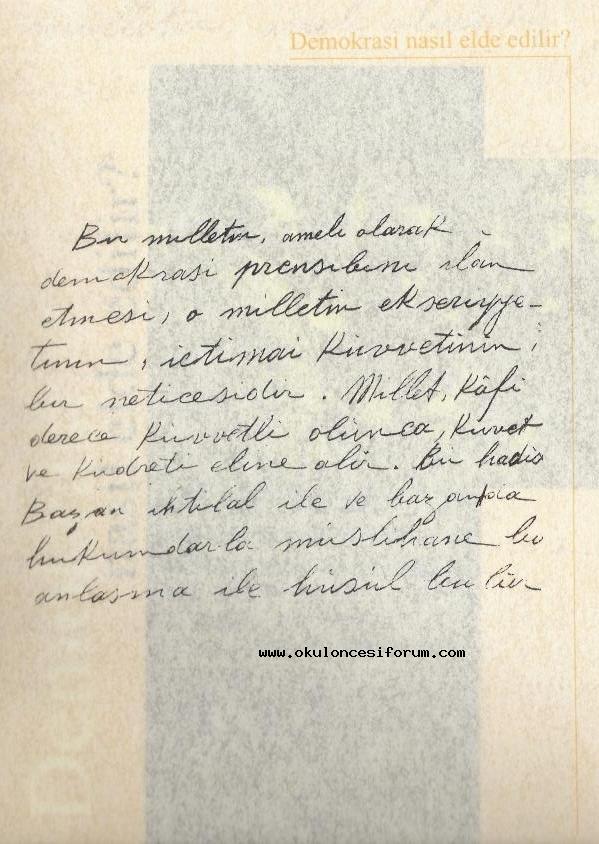 Demokrasi nasıl elde edilir?
Bir milletin, ameli olarak
demokrasi prensibini ilan
etmesi, o milletin ekseriyye-
tinin, ictimai kuvvetinin,
bir neticesidir. Millet, kâfi
derece kuvvetli olunca, kuvvet
ve kudreti eline alır. Bu hadise
Bazan ihtilal ile ve bazan da
hukumdarla muslihane bir
anlasma ile husul bulur
www.okuloncesiforum.com